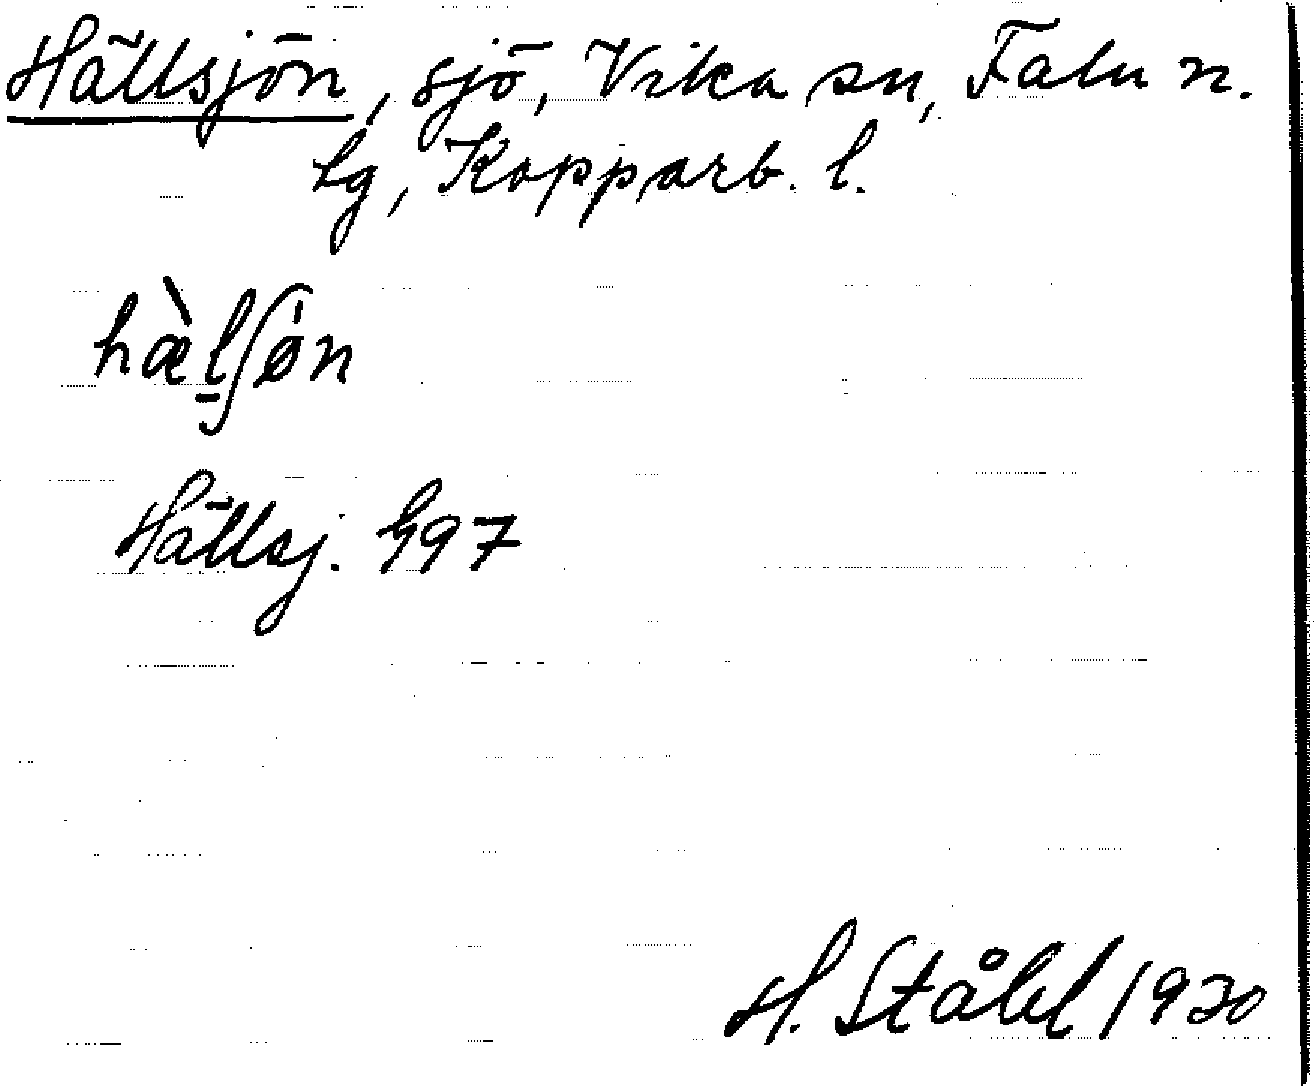 Hällsjön, sjö, Vika sn, Falu n.
tg, Kopparb. l.
hæ̀l̠ʃøn
Hällsj. h97
H. Ståhl 1930